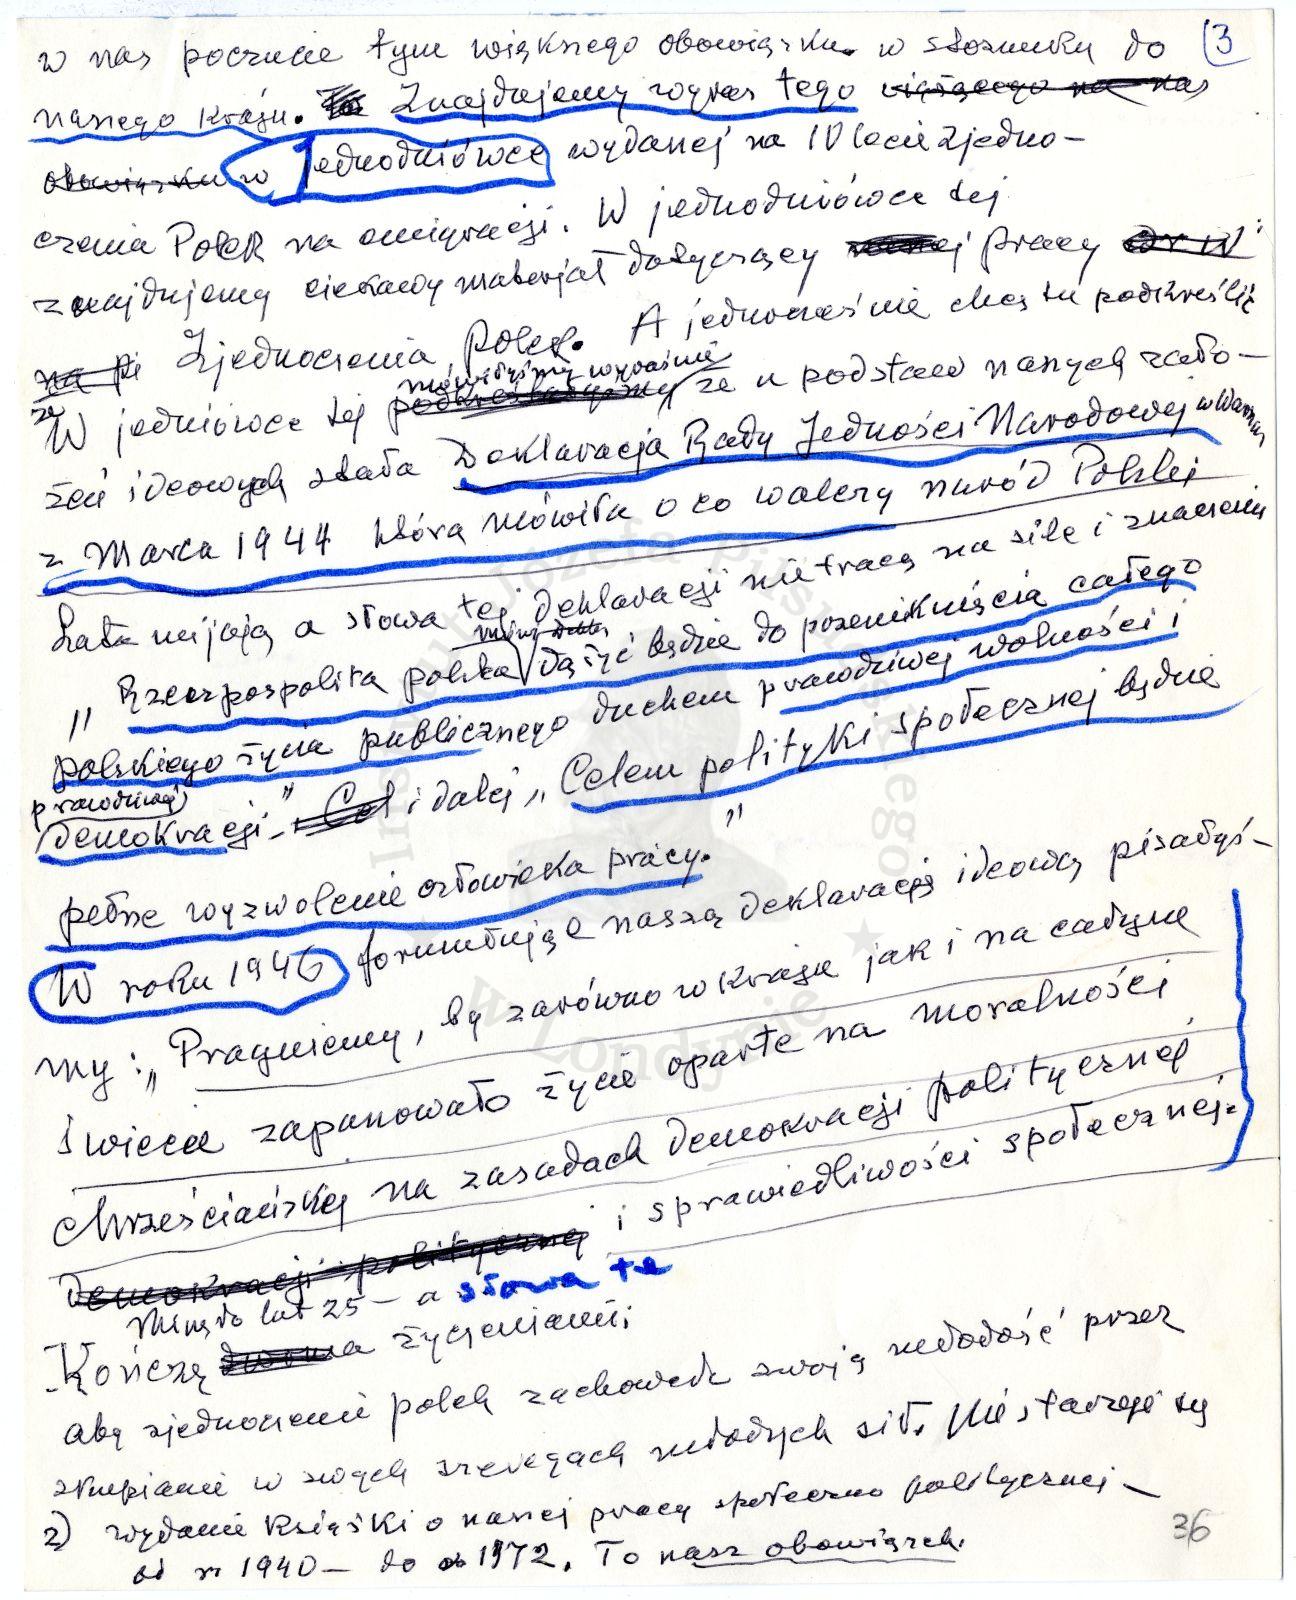 w nas poczucie tym większego obowiązku w stosunku do (3
naszego kraju. Znajdujemy wyraz tego wiążącego na nas
obowiązku w jednodniówce wydanej na IV lecie zjedno-
czenia Polek na emigracji. W jednodniówce tej
znajdujemy ciekawy materjał dotyczący naszej pracy
na Zjednoczenia Polek. A jednocześnie chcę tu podkreślić
że
mówiłyśmy wyraźnie
W jedniówce tej podkreślałyśmy że u podstaw naszych zało-
żeń ideowych stała Deklaracja Rady Jedności Narodowej w Warszaw
z Marca 1944 która mówiła o co walczy naród Polski
Lata mijają a słowa tej deklaracji nie tracą na sile i znaczeniu
„Rzeczpospolita polska dążyć będzie do przeniknięcia całego
polskiego życia publicznego duchem prawdziwej wolności i
prawdziwej
demokracji" Cel i dalej „Celem polityki społecznej będzie
pełne wyzwolenie człowieka pracy."
W roku 1946 formułując naszą deklarację ideową pisałyś-
my: „Pragniemy, by zarówno w kraju jak i na całym
świecie zapanowało życie oparte na moralności
chrześciańskiej na zasadach demokracji politycznej
demokracji politycznej i sprawiedliwości społecznej.
Minęło lat 25 – a słowa te
Kończę życzeniami:
aby zjednoczenie polek zachowało swoją młodość przez
skupianie w swych szeregach młodych sił. Nie starzeje się
2) wydanie książki o naszej pracy społeczno politycznej –
od r. 1940 – do 1972. To nasz obowiązek.
36
Instytut Józefa Piłsudskiego
w Londynie